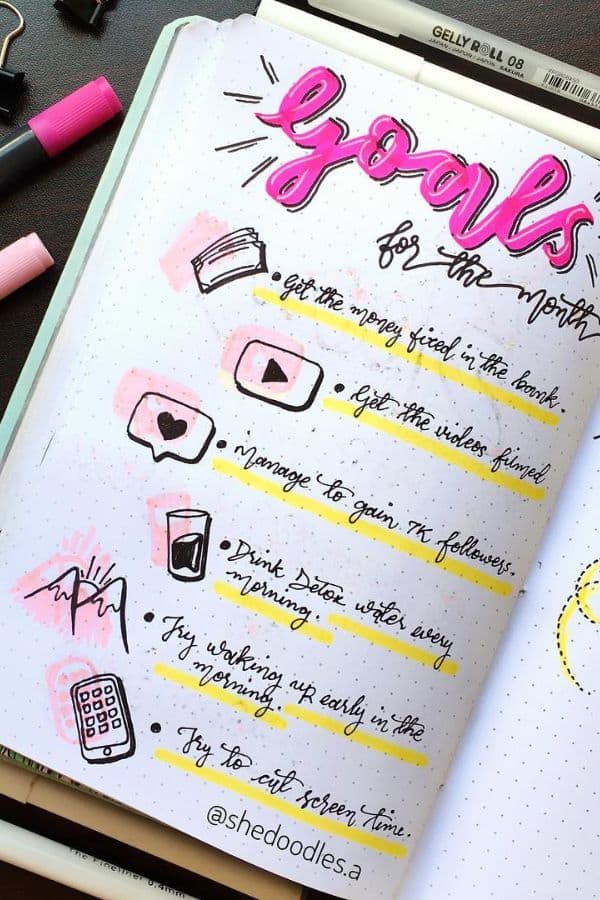 GELLY ROLL 08
JAPAN / JAPON / JAPÓN SAKURA
Goals
for the month
• Get the money fixed in the bank.
• Get the videos filmed
• Manage to gain 7K followers.
• Drink Detox water every
morning.
• Try waking up early in the
morning.
• Try to cut screen time.
@shedoodles.a
The Fineliner 0.4mm